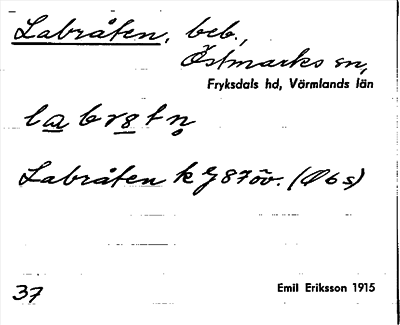 Labråten, beb.,
Östmarks sn,
Fryksdals hd, Värmlands län
Labråten k J 87 öv. (Ø b s)
37 Emil Eriksson 1915